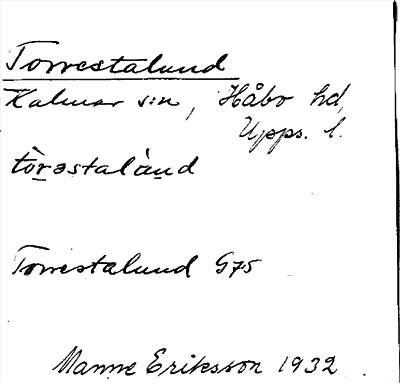 Torrestalund
Kalmar s:n, Håbo hd,
Upps. l.
tòrəstalànd
Torrestalund G75
Manne Eriksson 1932